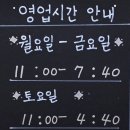 영업시간 안내
월요일 - 금요일
11:00 - 7:40
토요일
11:00 - 4:40